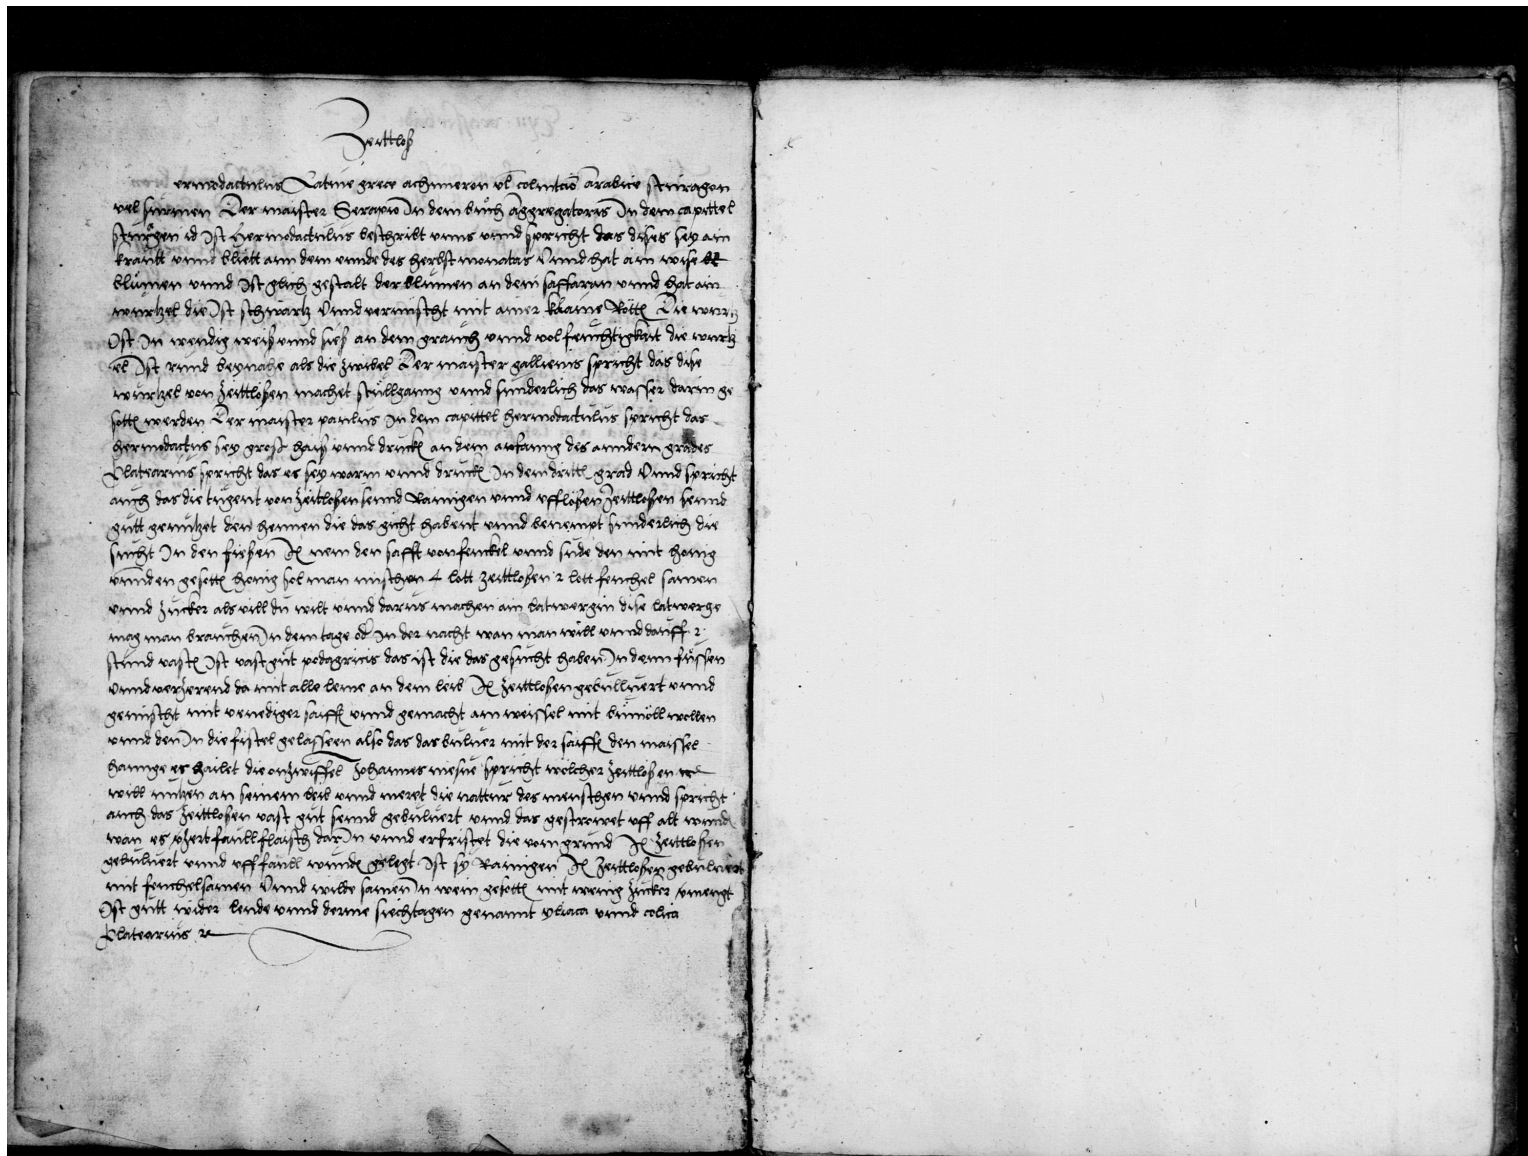 Zeittloß
ermodactulus Latine grece achimeron vel colintcio arabice sturagen
vel surmen Der maister Serapio In dem bůch aggregatoris In dem capittel
sturgen id Ist Hermodactulus beschribt vnns vnnd spricht das dises sey ain
krautt vnnd bliett ann dem ennde des herbstmonatas Vnnd hat ain wise
blůmen vnnd Ist glich gestalt der blůmen an dem saffaran vnnd hat ain
wurtzel die Ist schwartz Vnnd vermischt mit ainer klaine Rötte Die wurtz
Ist In wendig weiß vnnd sieß an dem grauch vnnd vol feuchtigkait die wurtz
el Ist rund beynahe als die zwibel Der maister gallienus spricht das dise
wurtzel von Zeittlosen machet stullganng vnnd sunderlich das wasser darin ge
sotten werden Der maister paulus In dem capittel hermodactulus spricht das
hermodactus sey grost haiß vnnd drucken an dem anfanng des anndern grades
Platearius spricht das es sey warm vnnd drucken In dem dritten grad Vnnd spricht
auch das die tugent von Zeittlosen sennd Rainigen vnnd vfflösen Zeittlosen sennd
gůtt genutzet den hennen die das gicht habent vnnd benempt sunderlich die
sucht In den fiesen Item nem den safft von fenckel vnnd sude den mit honig
vnnd en gesotten honig sol man mischen 4 lott zeittlosen 2 lott fenchel samen
vnnd Zucker als vill du wilt vnnd darus machen ain latwergin dise latwerge
mag man brauchen In dem tage oder In der nacht wan man will vnnd dauff 2
stund vasten Ist vast gůt podagricis das ist die das gesucht haben In denn fůssen
vnnd verzerend da mit alle leme an dem leib Item Zeittlosen gebulluert vnnd
gemischt mit venediger saiffen vnnd gemacht ain weissel mit bůmöll wollen
vnnd den In die fistel gelasseen also das das buluer mit der saiffen den maissel
hannge es hailet die on zwiffel Johannes mesue spricht wölcher Zeittlosen
will nutzen an seinem leib vnnd meret die nattur des menschen vnnd spricht
auch das Zeittlosen vast gůt sennd gebuluert vnnd das gestrowet vff alt wund
wan es verzert faull flaisch dar In vnnd erfristet die vom grund Item Zeittlosen
gebuluert vnnd vff faull wunden gelegt Ist sy Rainigen Item Zeittlosen gebuluert
mit fenchelsamen Vnnd wilde samen In wein gesotten mit wenig Zucker vmengt
Ist gůtt wider lende vnnd derme siechtagen genannt yliaca vnnd colica
Platearius